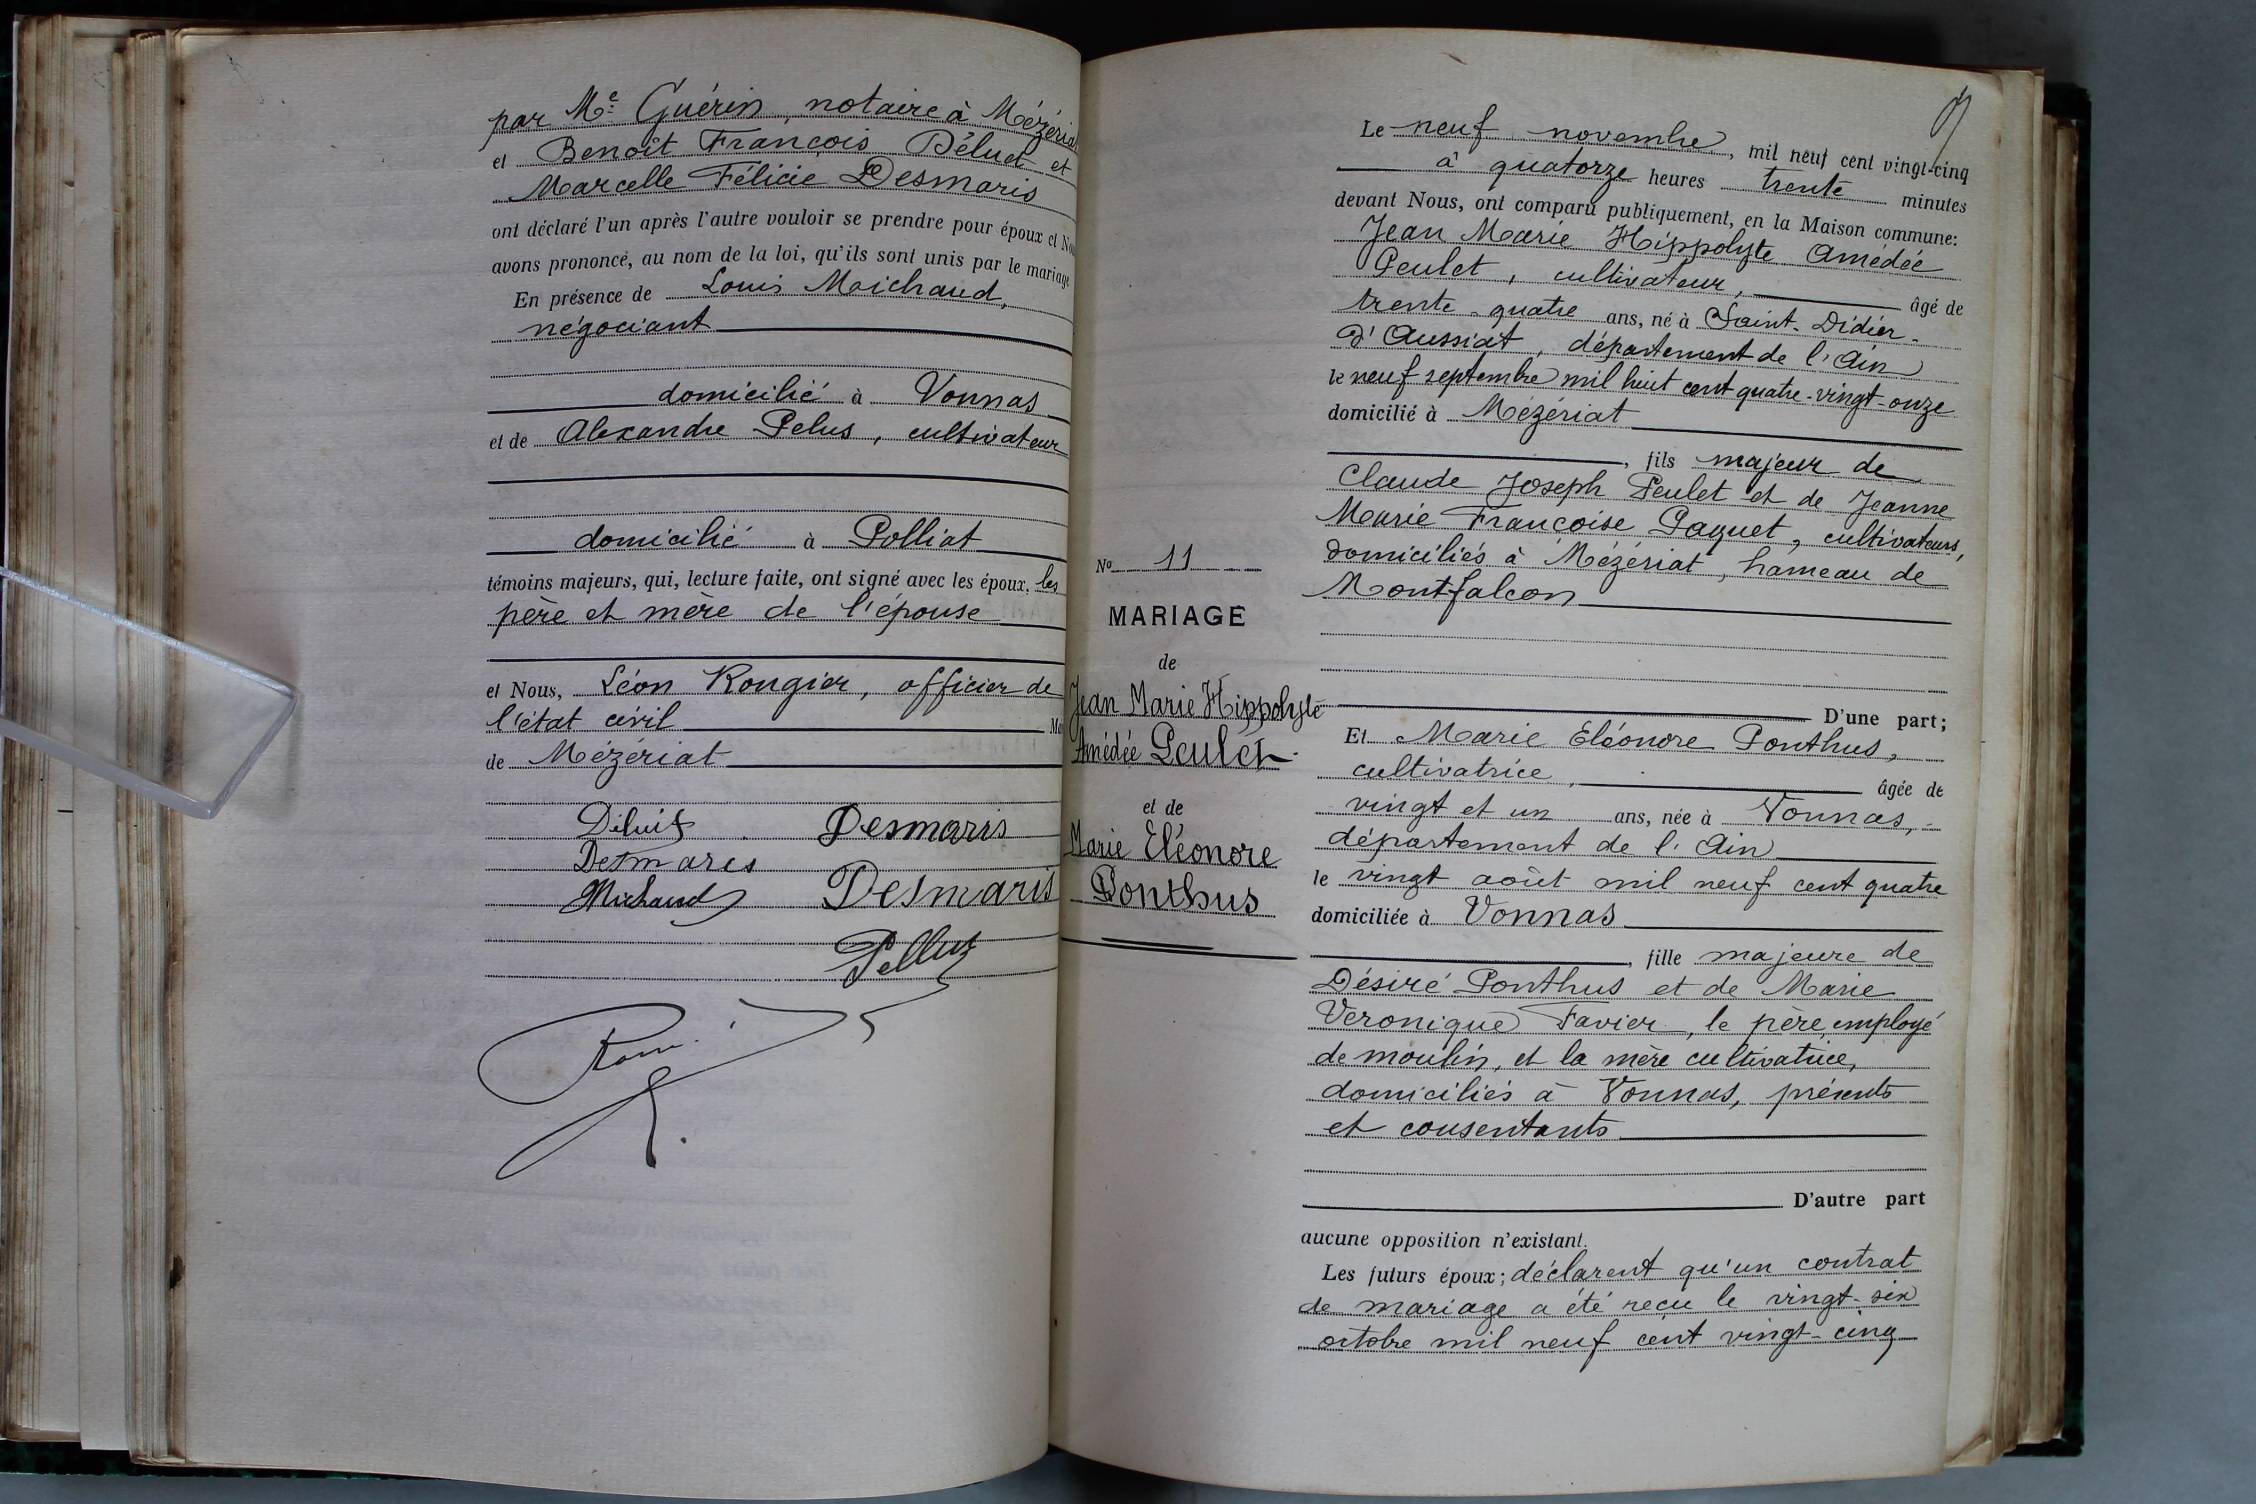 par Me Guérin, notaire à Mézériat
et Benoît François Déluet et
Marcelle Félicie Desmaris
ont déclaré l'un après l'autre vouloir se prendre pour époux et Nous
avons prononcé, au nom de la loi, qu'ils sont unis par le mariage
En présence de Louis Moichaud,
négociant
domicilié à Vonnas
et de Alexandre Pelus, cultivateur
domicilié à Polliat
témoins majeurs, qui, lecture faite, ont signé avec les époux, les
père et mère de l'épouse
et Nous, Léon Rongier, officier de
l'état civil Ma
de Mézériat
Desmaris
Desmares
Michaud Desmaris
Pellus
No 11
MARIAGE
de
Jean Marie Hippolyte
Amédée Peulet
et de
Marie Eléonore
Ponthus
Le neuf novembre, mil neuf cent vingt-cinq
à quatorze heures trente minutes
devant Nous, ont comparu publiquement, en la Maison commune:
Jean Marie Hippolyte Amédée
Peulet, cultivateur, âgé de
trente-quatre ans, né à Saint-Didier-
d'Aussiat, département de l'Ain
le neuf septembre mil huit cent quatre-vingt-onze
domicilié à Mézériat
, fils majeur de
Claude Joseph Peulet et de Jeanne
Marie Françoise Paquet, cultivateurs,
domiciliés à Mézériat, hameau de
Montfalcon
D'une part;
Et Marie Eléonore Ponthus,
cultivatrice, âgée de
vingt et un ans, née à Vonnas,
département de l'Ain
le vingt août mil neuf cent quatre
domiciliée à Vonnas
, fille majeure de
Désiré Ponthus et de Marie
Véronique Favier, le père employé
de moulin, et la mère cultivatrice,
domiciliés à Vonnas, présents
et consentants
D'autre part
aucune opposition n'existant.
Les futurs époux; déclarent qu'un contrat
de mariage a été reçu le vingt-six
octobre mil neuf cent vingt-cinq